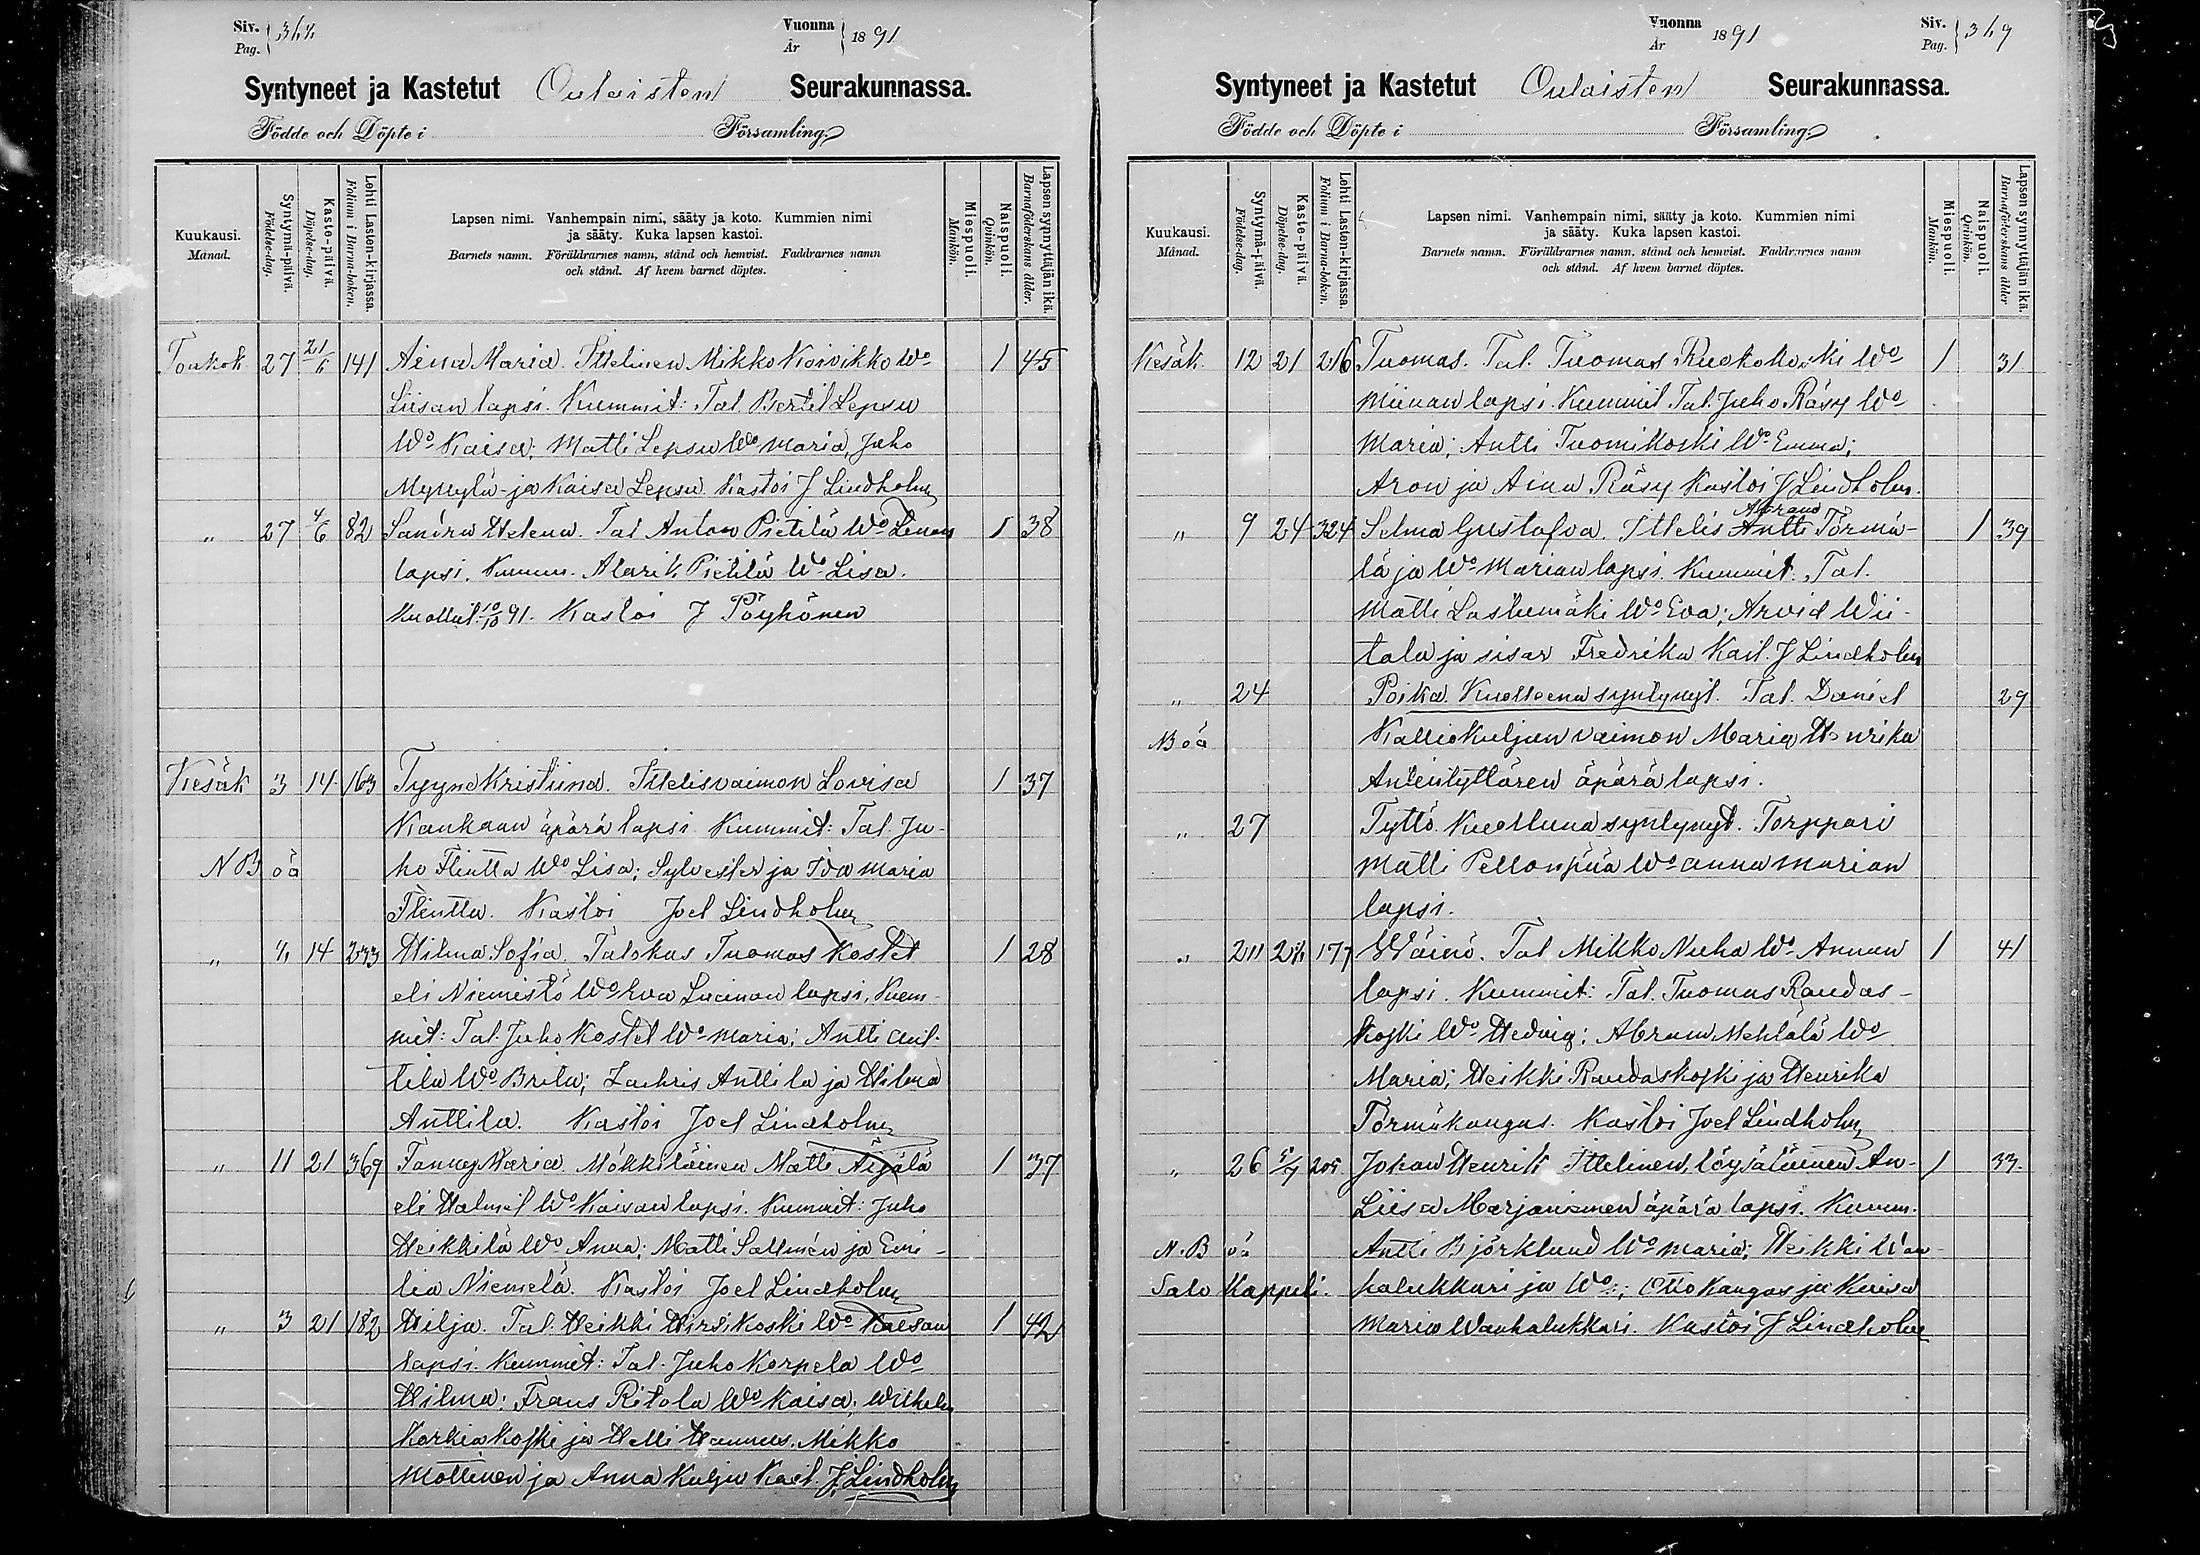 Siv. Pag. 
Vuonna År 1891
Syntyneet ja Kastetut Oulaisten Seurakunnassa.
Födde och Döpte i Församling.
Kuukausi. Månad.
Syntymä-päivä. Födelse-dag.
Kaste-päivä. Döpelse-dag.
Lehti Lasten-kirjassa. Folium i Barna-boken.
Lapsen nimi. Vanhempain nimi, sääty ja koto. Kummien nimi
ja sääty. Kuka lapsen kastoi.
Barnets namn. Föräldrarnes namn, stånd och hemvist. Faddrarnes namn
och stånd. Af hvem barnet döptes.
Miespuoli. Mankön.
Naispuoli. Qvinkön.
Lapsen synnyttäjän ikä. Barnaföderskans ålder.
Toukok 27 21/6 141 Aina Maria. Ittelinen Mikko Koivikko Wo 1 45
Liisan lapsi. Kummit: Tal. Bertil Lepsu
Wo Kaisa; Matti Lepsu Wo Maria, Juho
Myllylä ja Kaisa Lepsu. Kastoi J Lindholm
" 27 4/6 82 Sandra Helena. Tal Anton Pietilä Wo Lenan 1 38
lapsi. Kumm. Alarik Pietilä Wo Lisa.
Kuollut 10/10 91. Kastoi J Pöyhönen
Kesäk 3 14 163 Tyyne Kristiina. Ittelisvaimon Lovisa 1 37
Kankaan äpärä lapsi. Kummit: Tal. Ju-
NB oä ho Flintta Wo Lisa; Sylvester ja Ida Maria
Flintta. Kastoi Joel Lindholm
" 14 233 Hilma Sofia. Talokas Tuomas Kostet 1 28
eli Niemistö Wo Eva Lucinan lapsi, Kum-
mit: Tal. Juho Kostet Wo Maria; Antti Ant-
tila Wo Brita; Zachris Anttila ja Hilma
Anttila. Kastoi Joel Lindholm
" 11 21 369 Fanny Maria. Mökkiläinen Matti Äijälä 1 37
eli Halmet Wo Kaisan lapsi. Kummit: Juho
Heikkilä Wo Anna; Matti Sallmén ja Emi-
lia Niemelä. Kastoi Joel Lindholm
" 3 21 182 Hilja. Tal. Heikki Hirsikoski Wo Kaisan 1 42
lapsi. Kummit: Tal. Juho Korpela Wo
Hilma; Frans Ritola Wo Kaisa; Wilhelm
Korkiakoski ja Helli Hannus. Mikko
Mottinen ja Anna Kulju Kast. J. Lindholm
Vuonna År 1891
Siv. Pag. 369
Syntyneet ja Kastetut Oulaisten Seurakunnassa.
Födde och Döpte i Församling.
Kuukausi. Månad.
Syntymä-päivä. Födelse-dag.
Kaste-päivä. Döpelse-dag.
Lehti Lasten-kirjassa. Folium i Barna-boken.
Lapsen nimi. Vanhempain nimi, sääty ja koto. Kummien nimi
ja sääty. Kuka lapsen kastoi.
Barnets namn. Föräldrarnes namn, stånd och hemvist. Faddrarnes namn
och stånd. Af hvem barnet döptes.
Miespuoli. Mankön.
Naispuoli. Qvinkön.
Lapsen synnyttäjän ikä. Barnaföderskans ålder
Kesäk. 12 21 216 Tuomas. Tal. Tuomas Ruokokoski Wo 1 31
Miinan lapsi. Kummit Tal. Juho Räsy Wo
Maria; Antti Tuomikoski Wo Emma;
Aron ja Aina Räsy Kastoi J Lindholm.
" 9 24 324 Selma Gustafva. Ittelis Antti Abram Törmä- 1 39
lä ja Wo Marian lapsi. Kummit: Tal.
Matti Lastumäki Wo Eva; Arvid Wii-
tala ja sisar Fredrika Kast. J Lindholm
" 24 Poika. Kuolleena syntynyt. Tal. Daniel 29
NB oä Kalliokuljun vaimon Maria Henrika
Antintyttären äpärä lapsi.
" 27 Tyttö. Kuolluna syntynyt. Torppari
Matti Pellonpää Wo Anna Marian
lapsi.
" 177 Wäinö. Tal Mikko Nuha Wo Annan 1 41
lapsi. Kummit: Tal. Tuomas Raudas-
koski Wo Hedvig; Abram Mehtälä Wo
Maria; Heikki Raudaskoski ja Henrika
Törmäkangas. Kastoi Joel Lindholm
" 26 5/7 205 Johan Henrik Ittelinen, löysäläinen An- 1 33
Liisa Marjaniemen äpärä lapsi. Kumm.
N.B oä Antti Björklund Wo Maria; Heikki Wan-
Salo Kappeli. halukkari ja Wo; Otto Kangas ja Kaisa
Maria Wanhalukkari. Kastoi J Lindholm